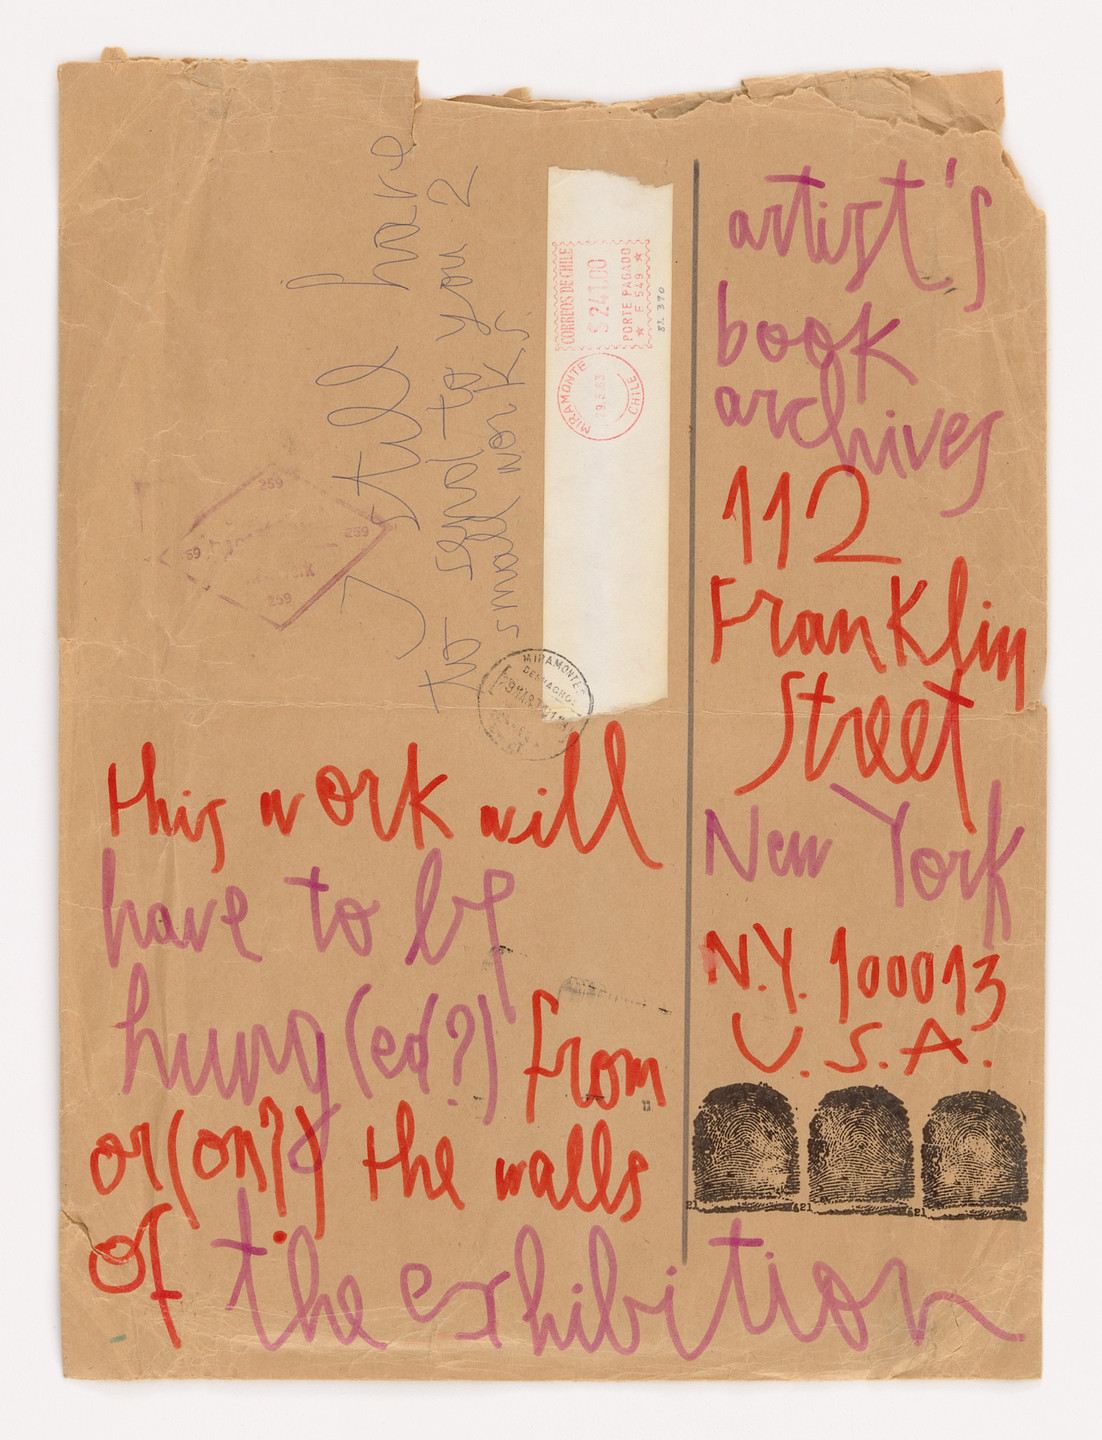 I still have
to send to you 2
small works.
CORREOS DE CHILE
$ 241.00
PORTE PAGADO
★ F 549 ★
BL 370
MIRAMONTE
CHILE
29.3.83
259
259
59
259
MIRAMONTES
artist's
book
archives
112
Franklin
Street
New York
N.Y. 100013
U.S.A.
this work will
have to be
hung (ed?) from
or (on?) the walls
of the exhibition